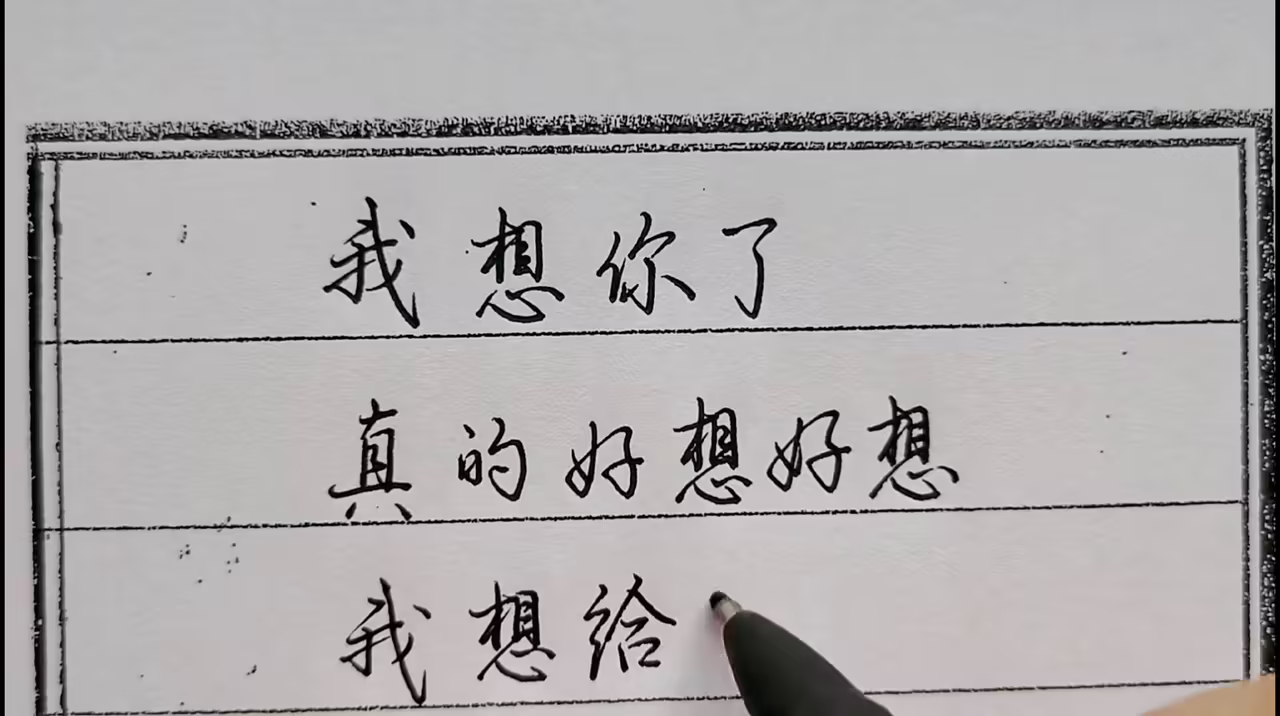 我想你了
真的好想好想
我想给